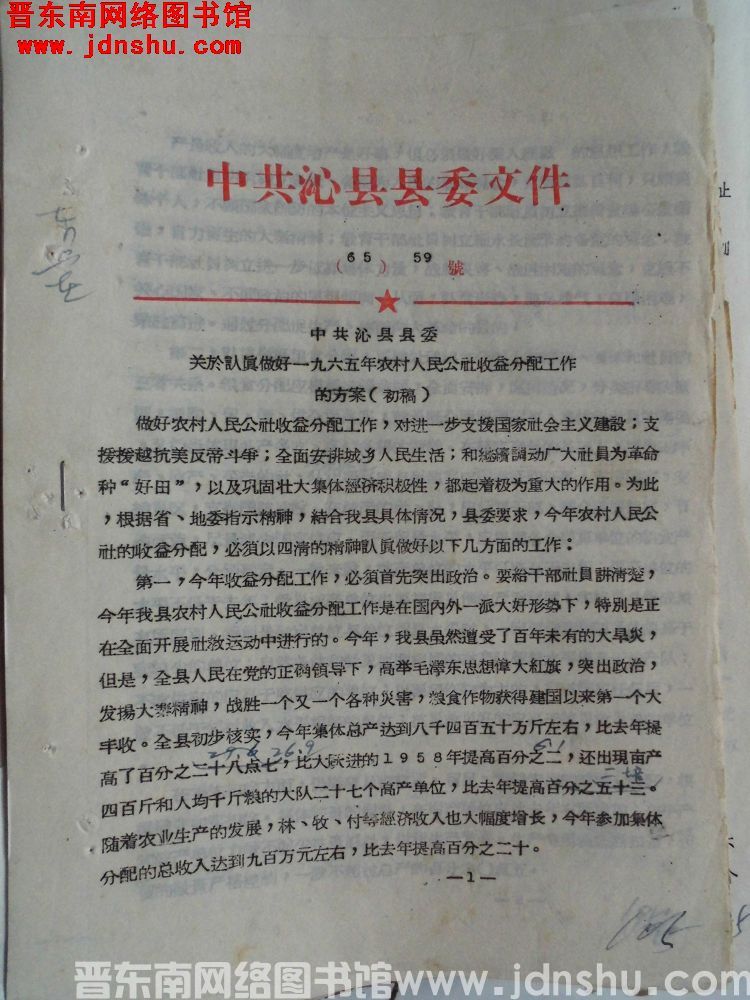 晋东南网络图书馆
www.jdnshu.com
中共沁县县委文件
(65) 59 號
中共沁县县委
关於認眞做好一九六五年农村人民公社收益分配工作
的方案(初稿)
做好农村人民公社收益分配工作,对进一步支援国家社会主义建設;支
援援越抗美反帝斗爭;全面安排城乡人民生活;和繼續調动广大社員为革命
种“好田”,以及巩固壮大集体經济积极性,都起着极为重大的作用。为此
,根据省、地委指示精神,結合我县具体情况,县委要求,今年农村人民公
社的收益分配,必須以四清的精神認眞做好以下几方面的工作:
第一,今年收益分配工作,必須首先突出政治。要給干部社員講清楚,
今年我县农村人民公社收益分配工作是在国內外一派大好形势下,特別是正
在全面开展社敎运动中进行的。今年,我县虽然遭受了百年未有的大旱災,
但是,全县人民在党的正确領导下,高举毛澤东思想偉大紅旗,突出政治,
发揚大寨精神,战胜一个又一个各种災害,粮食作物获得建国以来第一个大
丰收。全县初步核实,今年集体总产达到八千四百五十万斤左右,比去年提
26.9
高了百分之二十八点七,比大跃进的1958年提高百分之二,还出現亩产
四百斤和人均千斤粮的大队二十七个高产单位,比去年提高百分之五十三。
随着农业生产的发展,林、牧、付等經济收入也大幅度增长,今年参加集体
分配的总收入达到九百万元左右,比去年提高百分之二十。
—1—
晋东南网络图书馆www.jdnshu.com